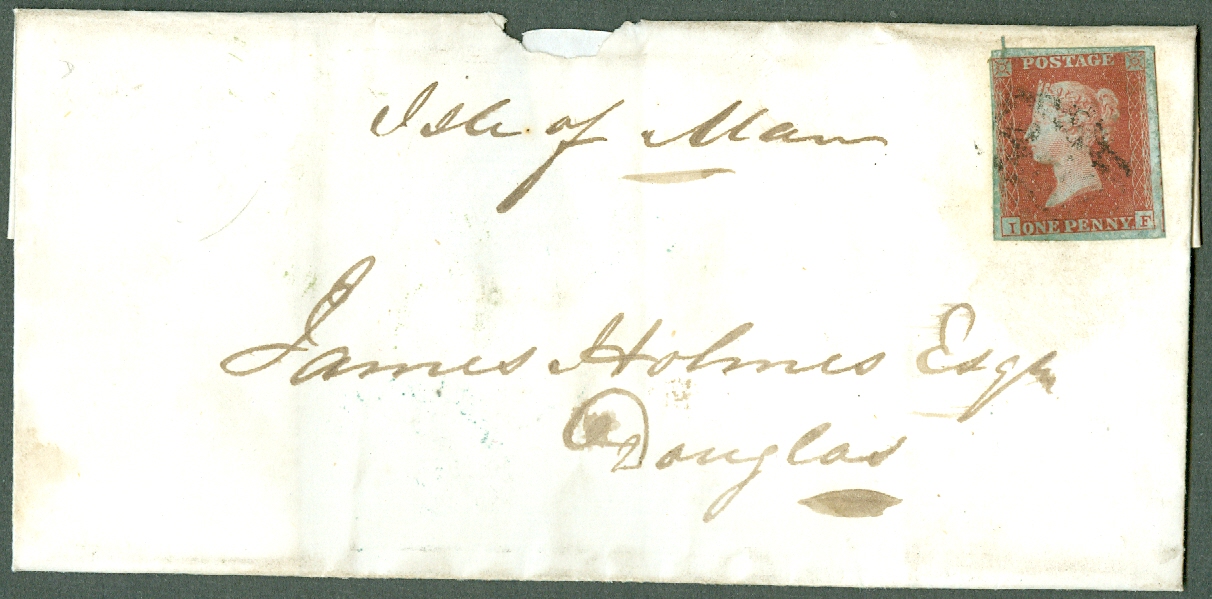 Isle of Man
POSTAGE
I ONE PENNY F
James Holmes Esqr
Douglas